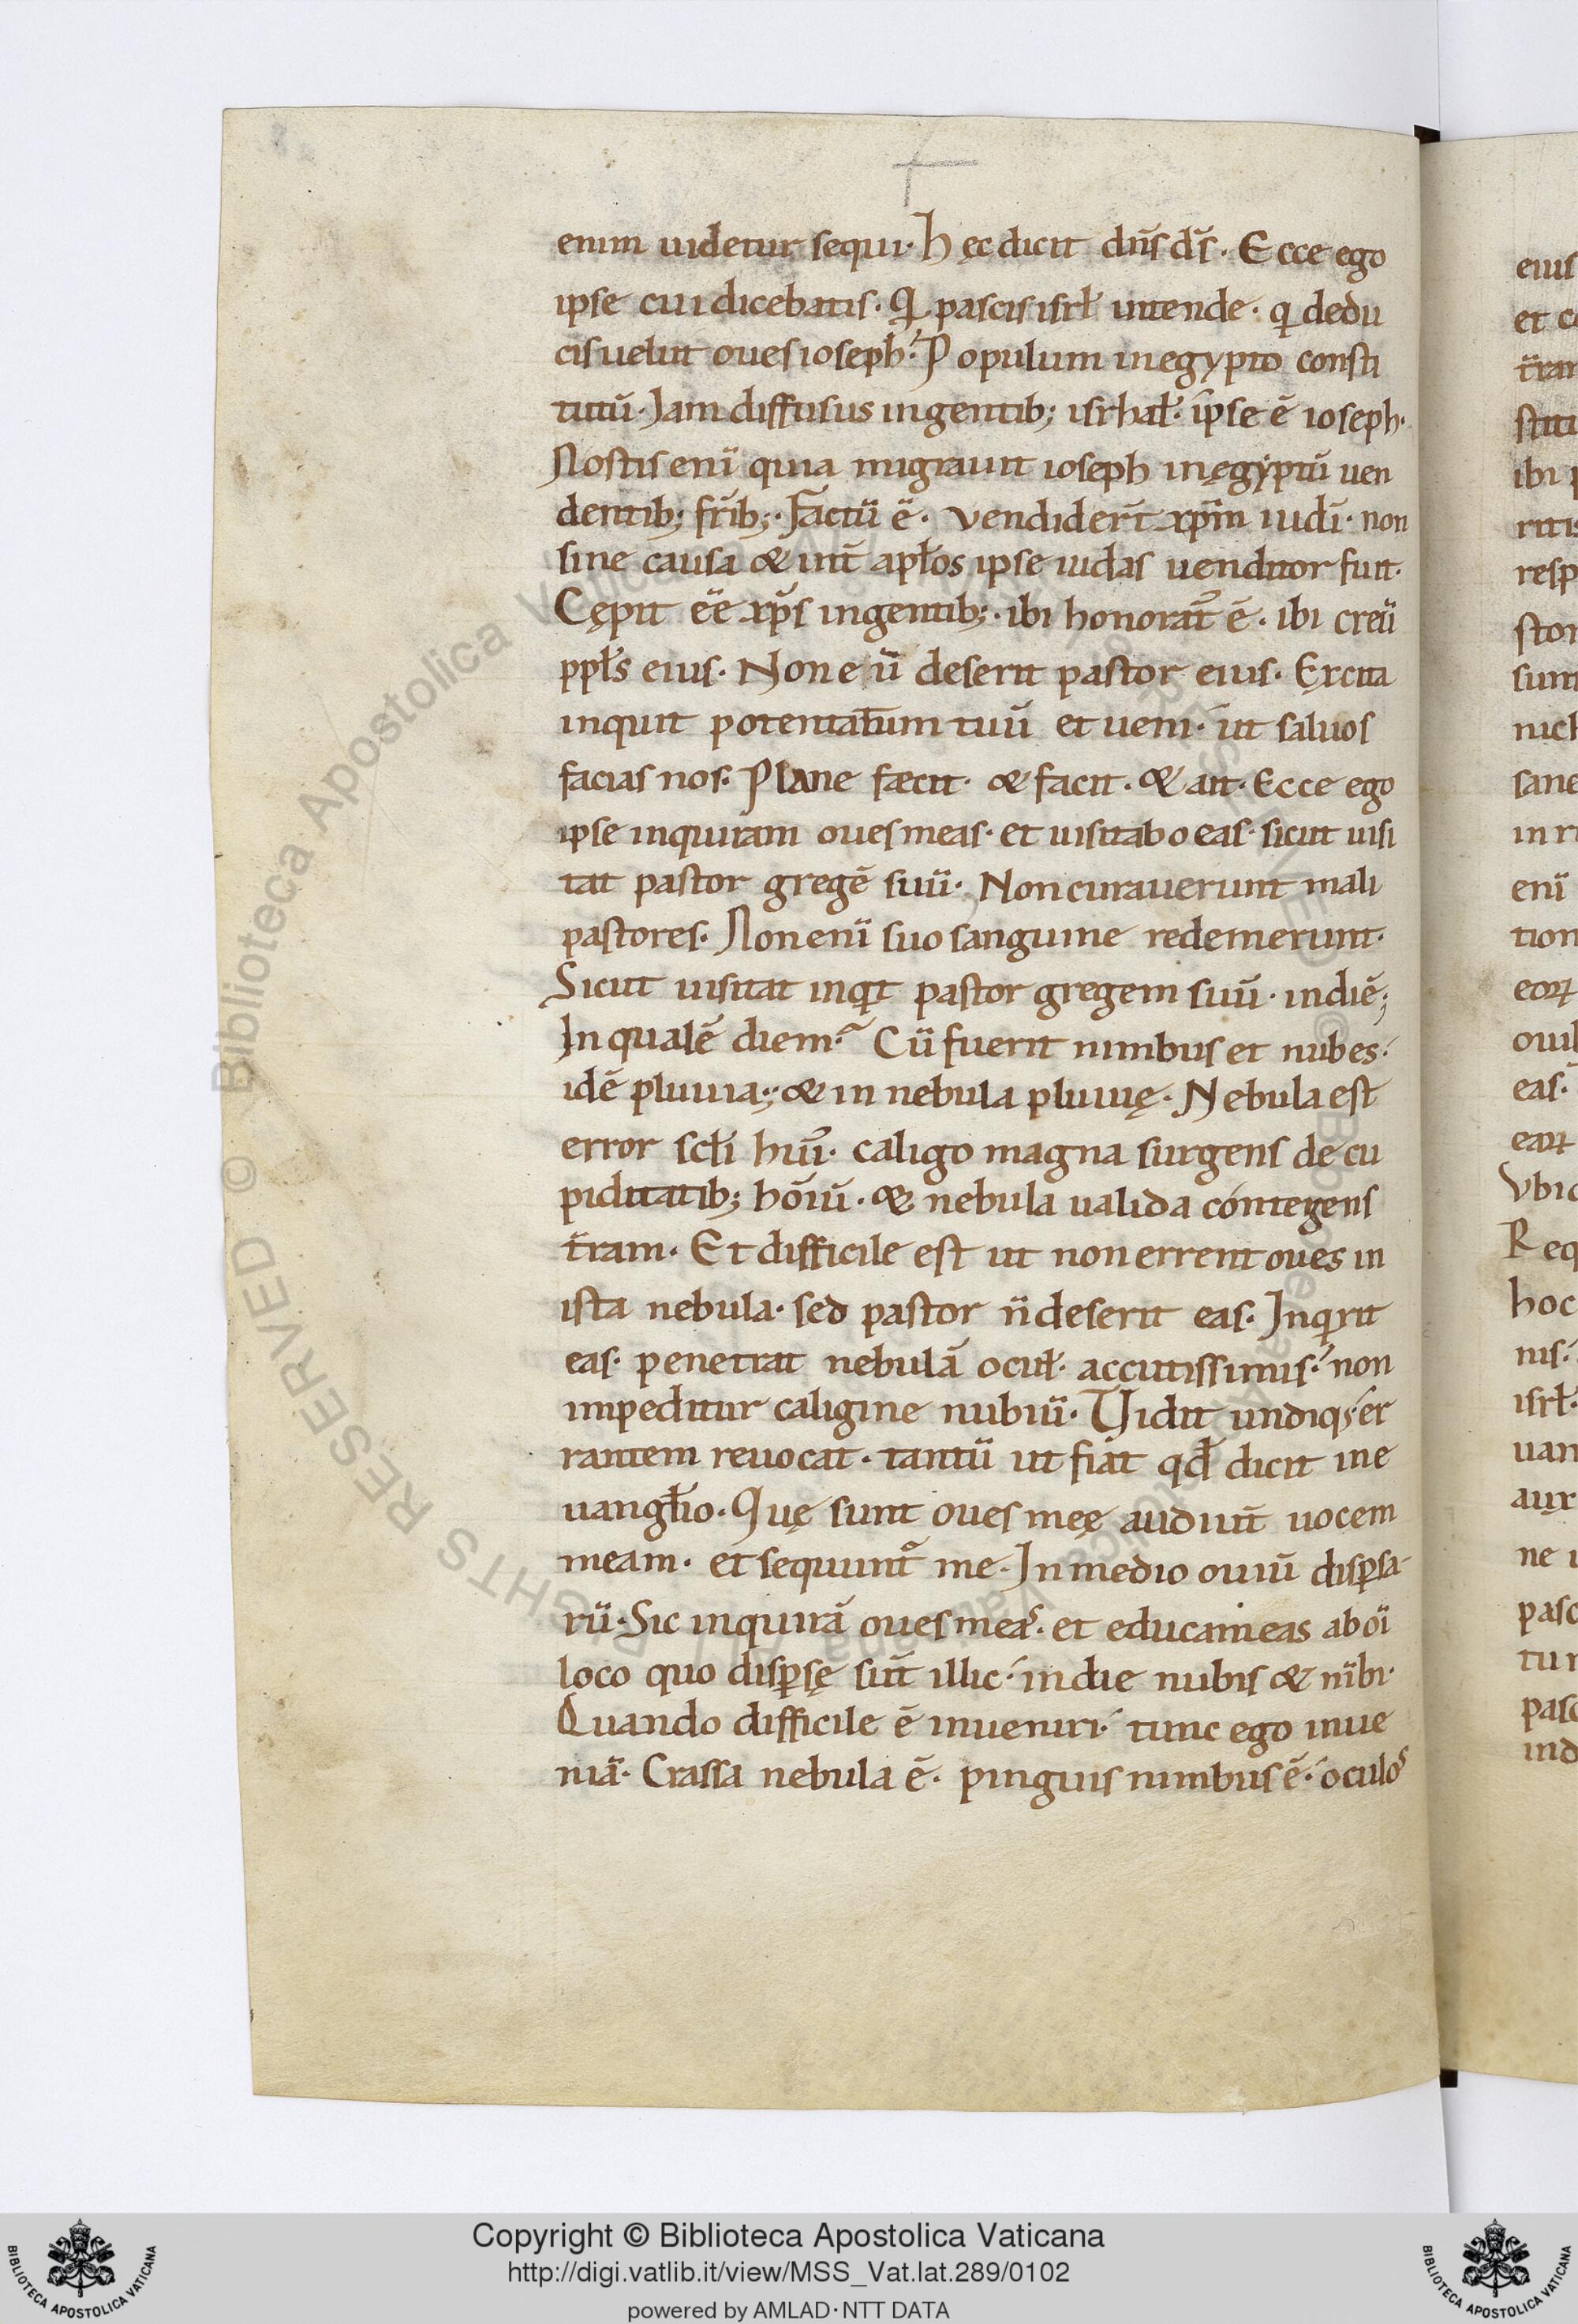 enim uidetur sequi. Hęc dicit dn̄s ds̄. Ecce ego
ipse cui dicebatis. Q̣ pascis isrł intende. q dedu
cis uelut oues ioseph. Populum in egypto consti
tutū. Iam diffusus in gentib; isrhał. ipse ē ioseph.
Nostis enī quia migrauit ioseph in ęgyptū uen
dentib; frīb;. Factū ē. Vendider̄t xp̄m iudī. non
sine causa & int̄ apłos ipse iudas uenditor fuit.
Cępit ēē xp̄s in gentib;. ibi honorat̄ ē. ibi creū
ppłs eius. Non eū deserit pastor eius. Excita
inquit potentatum tuū et ueni. ut saluos
facias nos. Plane fæcit. & facit. & ait. Ecce ego
ipse inquiram oues meas. et uisitabo eas. sicut uisi
tat pastor gregē suū. Non curauerunt mali
pastores. Non enī suo sanguine redemerunt.
Sicut uisitat inqt pastor gregem suū. in diē;
In qualē diem. Cū fuerit nimbus et nubes.
idē pluuia; & in nebula pluuię. Nebula est
error scłi huī. caligo magna surgens de cu
piditatib; hōiū. & nebula ualida contegens
t̄ram. Et difficile est ut non errent oues in
ista nebula. sed pastor n̄ deserit eas. Inqrit
eas. penetrat nebulā ocuł. accutissimis. non
impeditur caligine nubiū. Uidit undiq; er
rantem reuocat. tantū ut fiat qđ dicit in e
uangłio. Quę sunt oues meę audiut̄ uocem
meam. et sequunt̄ me. In medio ouiū disp̄sa
rū. Sic inquirā oues meas. et educam eas ab oī
loco quo disp̄sę sut̄ illic. in die nubis & nībi.
Quando difficile ē inueniri. tunc ego inue
niā. Crassa nebula ē. pinguis nimbus ē. oculos
eius
et co
t̄ran
stiti
ibi p
ritis
resp
stor
sunt
nich
sane
in ri
enī
tion
eoꝝ
ouil
eas.
eaꝝ
Vbic
Req
hoc
nis.
isrł.
uan
aux
ne i
pasc
tu n
pasc
ind
Copyright © Biblioteca Apostolica Vaticana
http://digi.vatlib.it/view/MSS_Vat.lat.289/0102
powered by AMLAD·NTT DATA
BIBLIOTECA APOSTOLICA VATICANA
BIBLIOTECA APOSTOLICA VATICANA